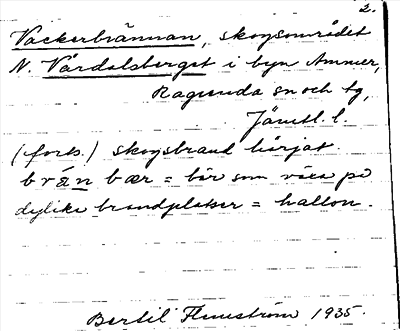 2.
Vackerbrännan, skogsområdet
N. Vårdalsberget i byn Ammer,
Ragunda sn och tg,
Jämtl. l.
(forts.) skogsbrand härjat.
brän bær = bär som växa på
dylika brandplatser = hallon.
Bertil Flemström 1935.